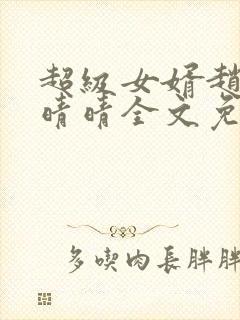 超級女婿趙
晴晴全文免
多喫肉長胖胖